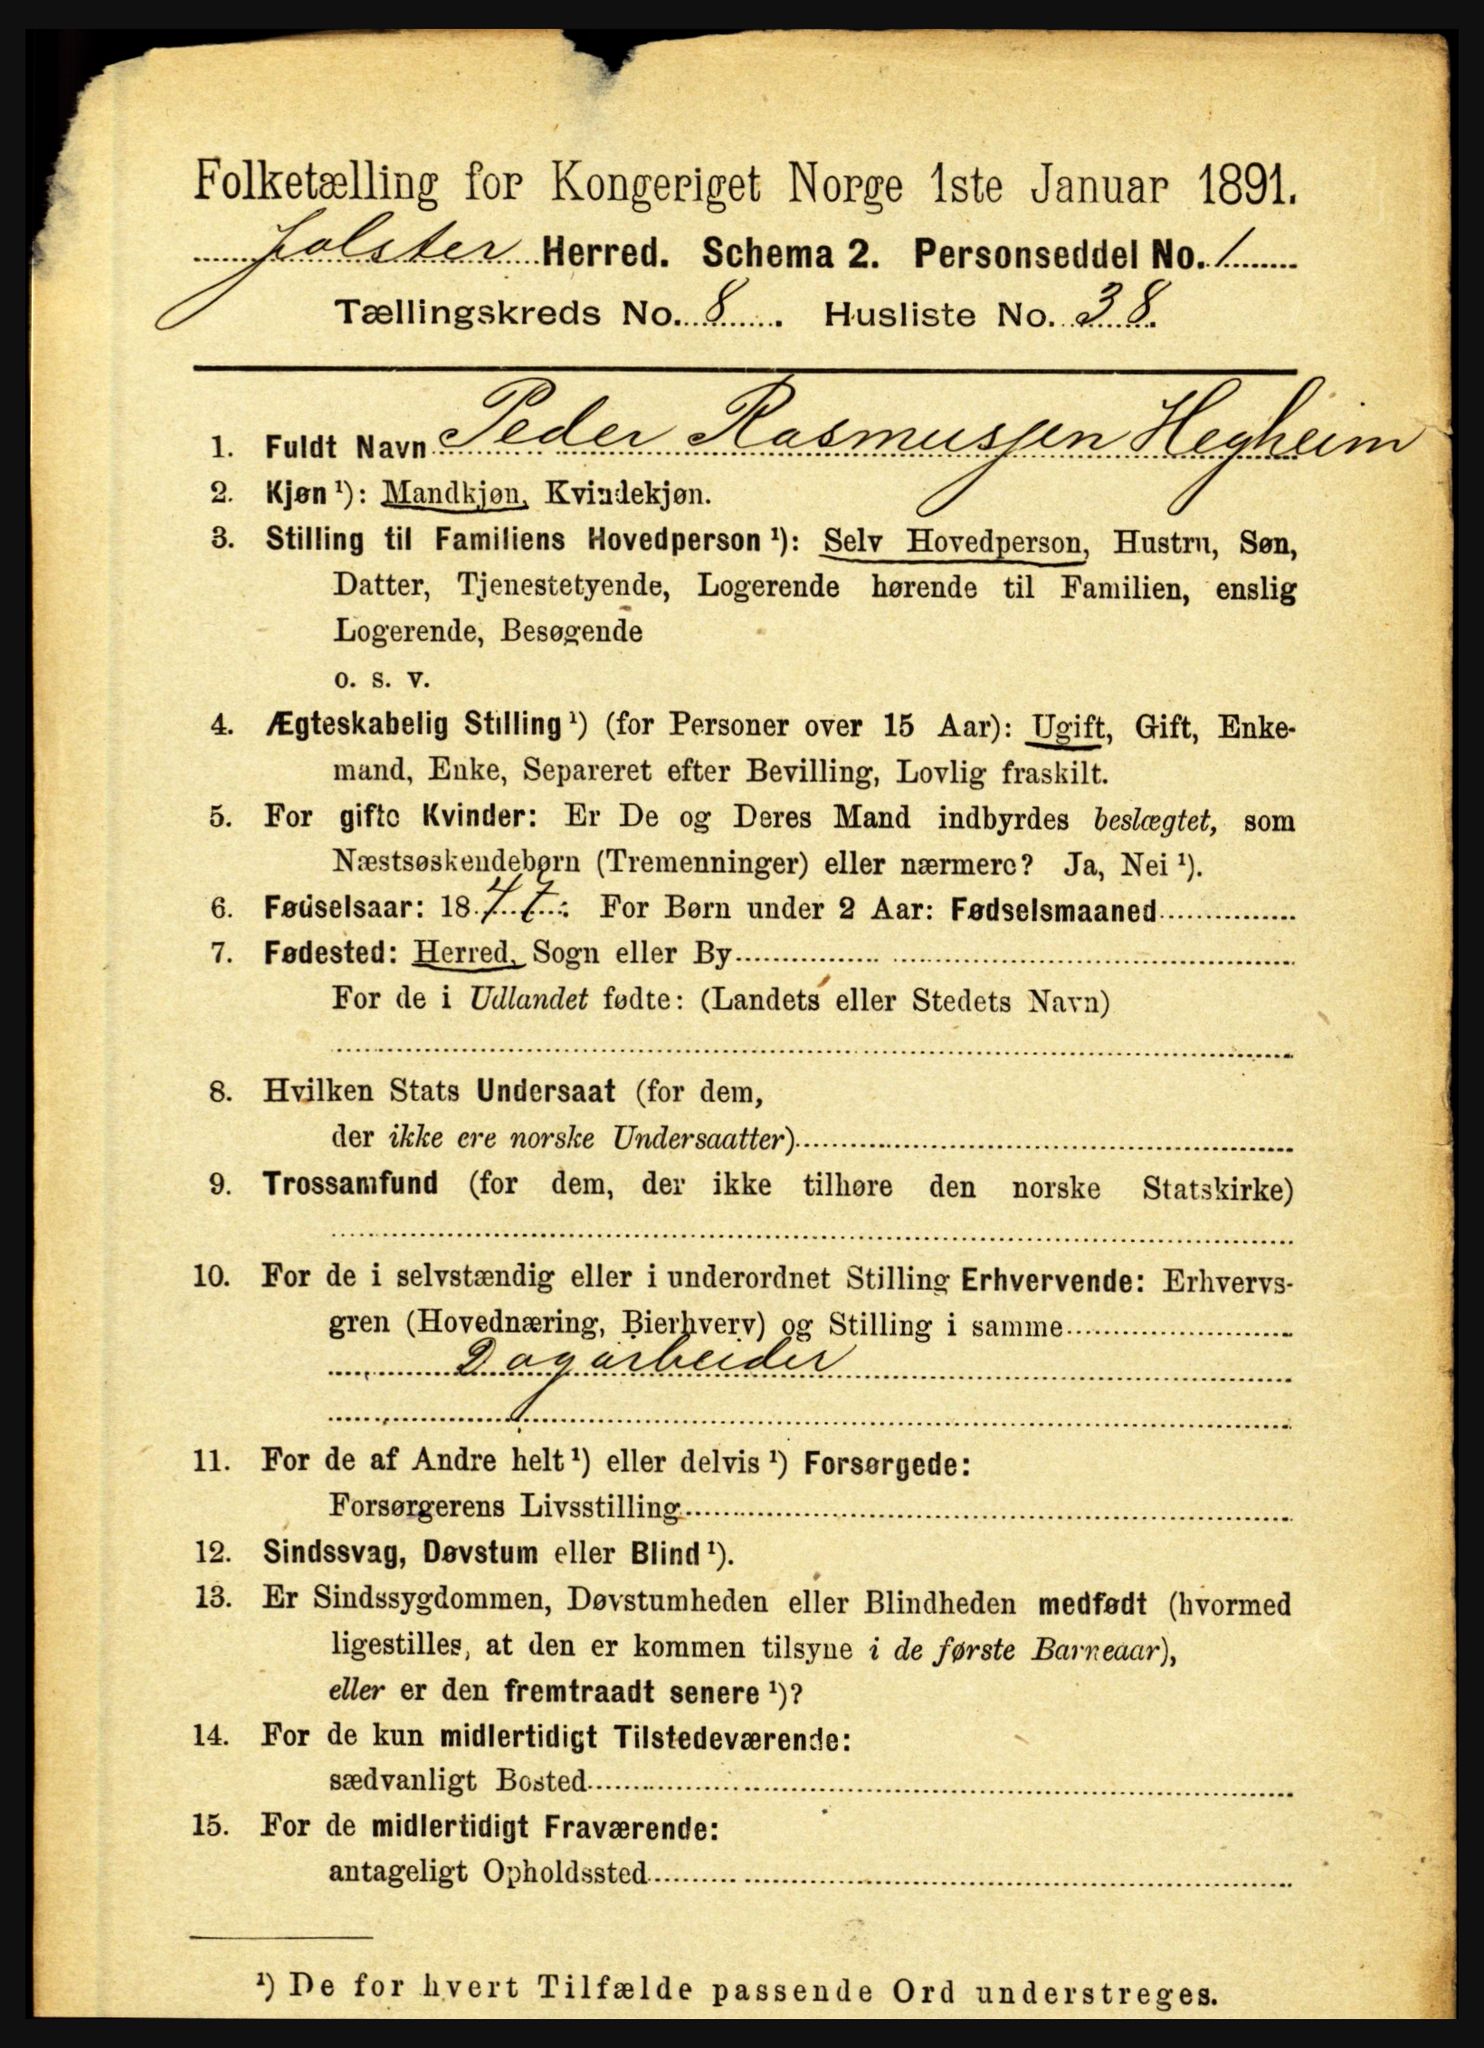 Folketælling for Kongeriget Norge 1ste Januar 1891.
Jølster Herred. Schema 2. Personseddel No. 1
Tællingskreds No. 8. Husliste No. 38.
1. Fuldt Navn Peder Rasmussen Hegheim
2. Kjøn ¹): Mandkjøn, Kvindekjøn.
3. Stilling til Familiens Hovedperson ¹): Selv Hovedperson, Hustru, Søn,
Datter, Tjenestetyende, Logerende hørende til Familien, enslig
Logerende, Besøgende
o. s. v.
4. Ægteskabelig Stilling ¹) (for Personer over 15 Aar): Ugift, Gift, Enke-
mand, Enke, Separeret efter Bevilling, Lovlig fraskilt.
5. For gifte Kvinder: Er De og Deres Mand indbyrdes beslægtet, som
Næstsøskendebørn (Tremenninger) eller nærmere? Ja, Nei ¹).
6. Fødselsaar: 1847. For Børn under 2 Aar: Fødselsmaaned
7. Fødested: Herred, Sogn eller By
For de i Udlandet fødte: (Landets eller Stedets Navn)
8. Hvilken Stats Undersaat (for dem,
der ikke ere norske Undersaatter)
9. Trossamfund (for dem, der ikke tilhøre den norske Statskirke)
10. For de i selvstændig eller i underordnet Stilling Erhvervende: Erhvervs-
gren (Hovednæring, Bierhverv) og Stilling i samme
Dagarbeider
11. For de af Andre helt ¹) eller delvis ¹) Forsørgede:
Forsørgerens Livsstilling
12. Sindssvag, Døvstum eller Blind ¹).
13. Er Sindssygdommen, Døvstumheden eller Blindheden medfødt (hvormed
ligestilles, at den er kommen tilsyne i de første Barneaar),
eller er den fremtraadt senere ¹)?
14. For de kun midlertidigt Tilstedeværende:
sædvanligt Bosted
15. For de midlertidigt Fraværende:
antageligt Opholdssted
¹) De for hvert Tilfælde passende Ord understreges.